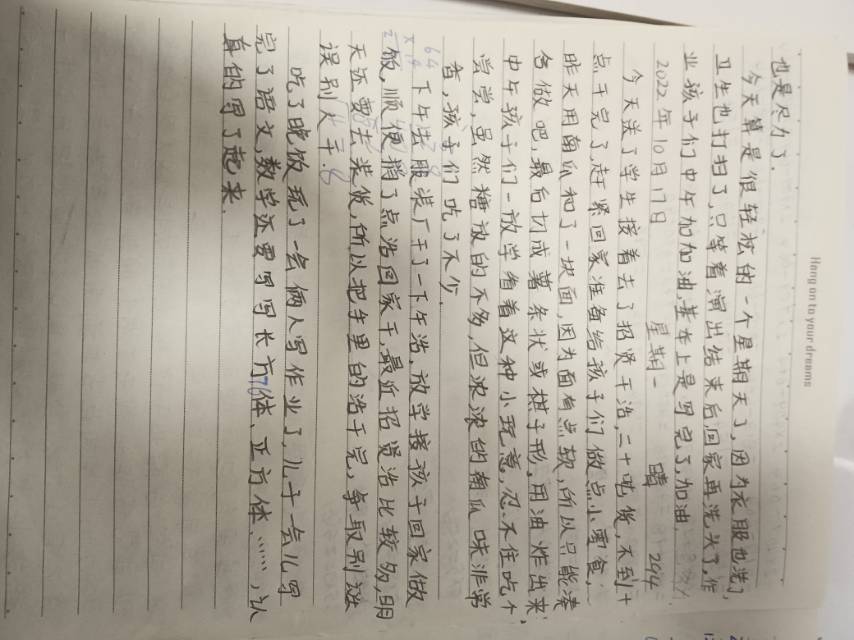 Hang on to your dreams
也是尽力了.
今天算是很轻松的一个星期天了,因为衣服也洗了,
卫生也打扫了,只等着演出结束后,回家再洗头了,作
业孩子们中午加加油,基本上是写完了,加油.
2022年10月17日 星期一 晴 294
今天送了学生接着去了招贤干活,二十吨货,不到十
点干完了,赶紧回家准备给孩子们做点小零食,
昨天用南瓜和了一块面,因为面有点软,所以只能凑
合做吧,最后切成薯条状或棋子形,用油炸出来,
中午孩子们一放学看着这种小玩意,忍不住吃个
尝尝,虽然糖放的不多,但浓浓的南瓜味非常
香,孩子们吃了不少.
64
下午去服装厂干了一下午活,放学接孩子回家做
饭,顺便捎了点活回家干,最近招贤活比较多,明
天还要去装货,所以把手里的活干完,争取别耽
误别人干.
吃了晚饭玩了一会俩人写作业了,儿子一会儿写
完了语文,数学还要写写长方体、正方体、……,认
真的写了起来.